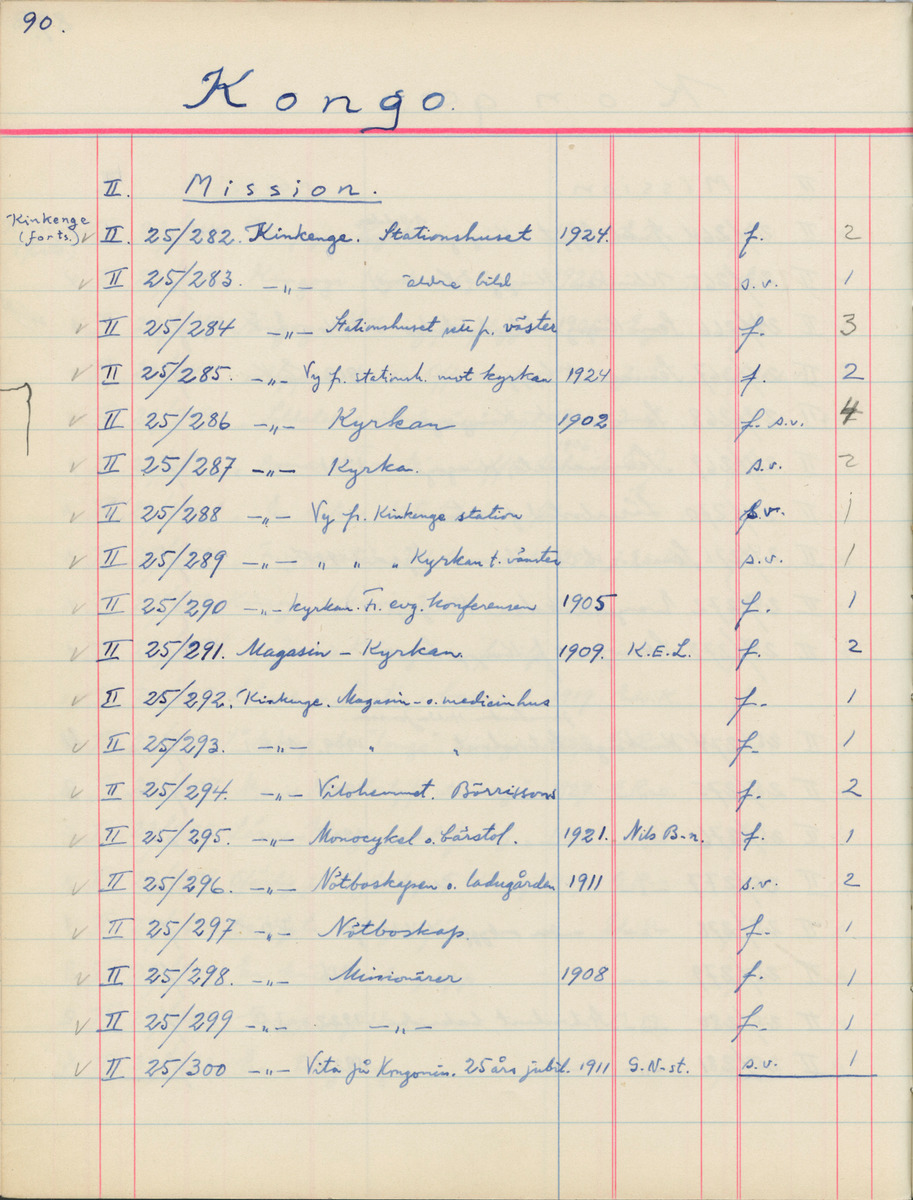 90.
Kongo.
II. Mission.
Kinkenge
(forts.) ✓ II. 25/282. Kinkenge. Stationshuset 1924. f. 2
✓ II 25/283. —„— äldre bild s.v. 1
✓ II 25/284 —„— Stationshuset väster f. 3
✓ II 25/285. —„— Vy fr. stationsh. mot kyrkan 1924 f. 2
✓ II 25/286 —„— Kyrkan 1902 f. s.v. 4
✓ II 25/287 —„— Kyrka. s.v. 2
✓ II 25/288 —„— Vy fr. Kinkenge station s.v. 1
✓ II 25/289 —„— „ „ „ Kyrkan t. vänster s.v. 1
✓ II 25/290 —„— kyrkan. Fr. evg. konferensen 1905 f. 1
✓ II 25/291. Magasin – Kyrkan. 1909. K.E.L. f. 2
✓ II 25/292. Kinkenge. Magasin- o. medicinhus f. 1
✓ II 25/293. —„— „ „ f. 1
✓ II 25/294. —„— Vilohemmet. Börrissons f. 2
✓ II 25/295. —„— Monocykel o. bärstol. 1921. Nils B-n. f. 1
✓ II 25/296. —„— Nötboskapen o. ladugården 1911 s.v. 2
✓ II 25/297 —„— Nötboskap. f. 1
✓ II 25/298. —„— Missionärer 1908 f. 1
✓ II 25/299 —„— —„— f. 1
✓ II 25/300 —„— Vita på Kongomis. 25 års jubil. 1911 S.N-st. s.v. 1